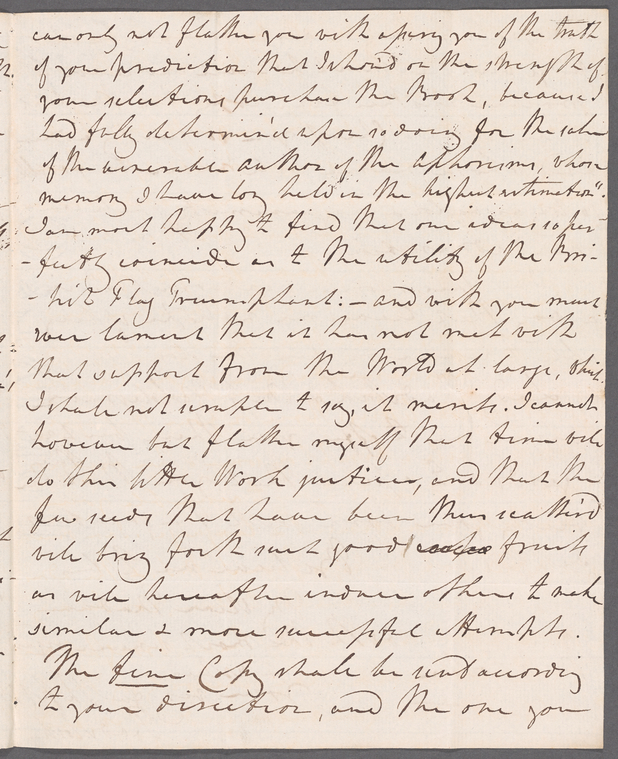 can only not flatter you with apprising you of the truth
of your prediction that I should on the strength of
your selections purchase the Book, because I
had fully determin'd upon so doing for the sake
of the venerable author of the aphorisms, whose
memory I have long held in the highest estimation".
I am most happy to find that our ideas so per-
-fectly coincide as to the utility of the Bri-
-tish Flag Triumphant: - and with you must
ever lament that it has not met with
that support from the World at large, which
I shall not scruple to say, it merits. I cannot
however but flatter myself that time will
do this little Work justice, and that the
few seeds that have been thus scatter'd
will bring forth such good fruits
as will hereafter induce others to make
similar & more successful attempts.
The fine Copy shall be sent according
to your direction, and the one you